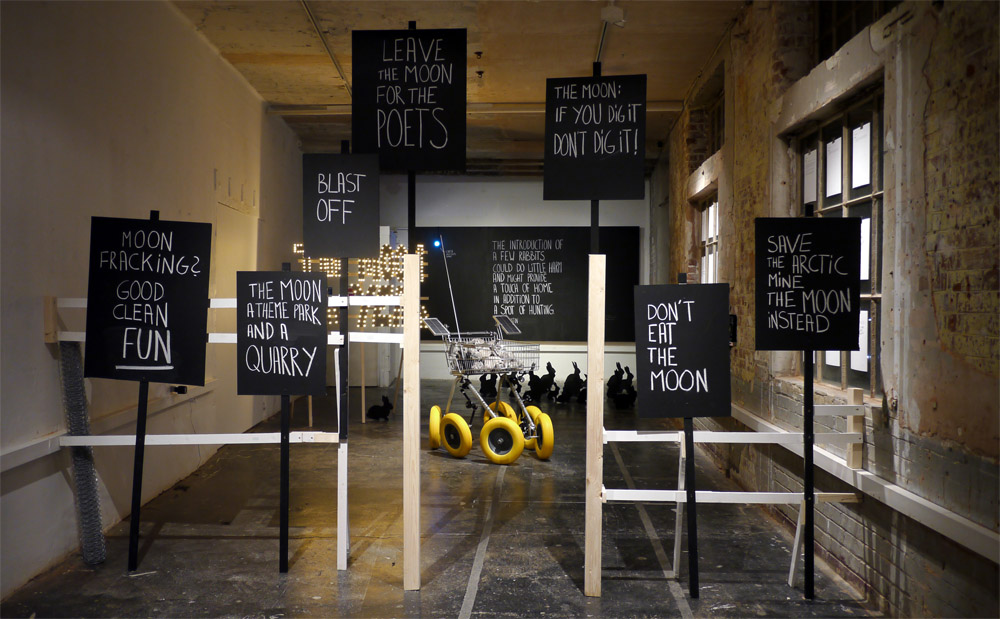 LEAVE
THE MOON
FOR THE
POETS
THE MOON:
IF YOU DIG IT
DON'T DIG IT!
BLAST
OFF
MOON
FRACKING?
GOOD
CLEAN
FUN
THE MOON
A THEME PARK
AND A
QUARRY
THE INTRODUCTION OF
A FEW RABBITS
COULD DO LITTLE HARM
AND MIGHT PROVIDE
A TOUCH OF HOME
IN ADDITION TO
A SPOT OF HUNTING.
DON'T
EAT
THE
MOON
SAVE
THE ARCTIC
MINE
THE MOON
INSTEAD